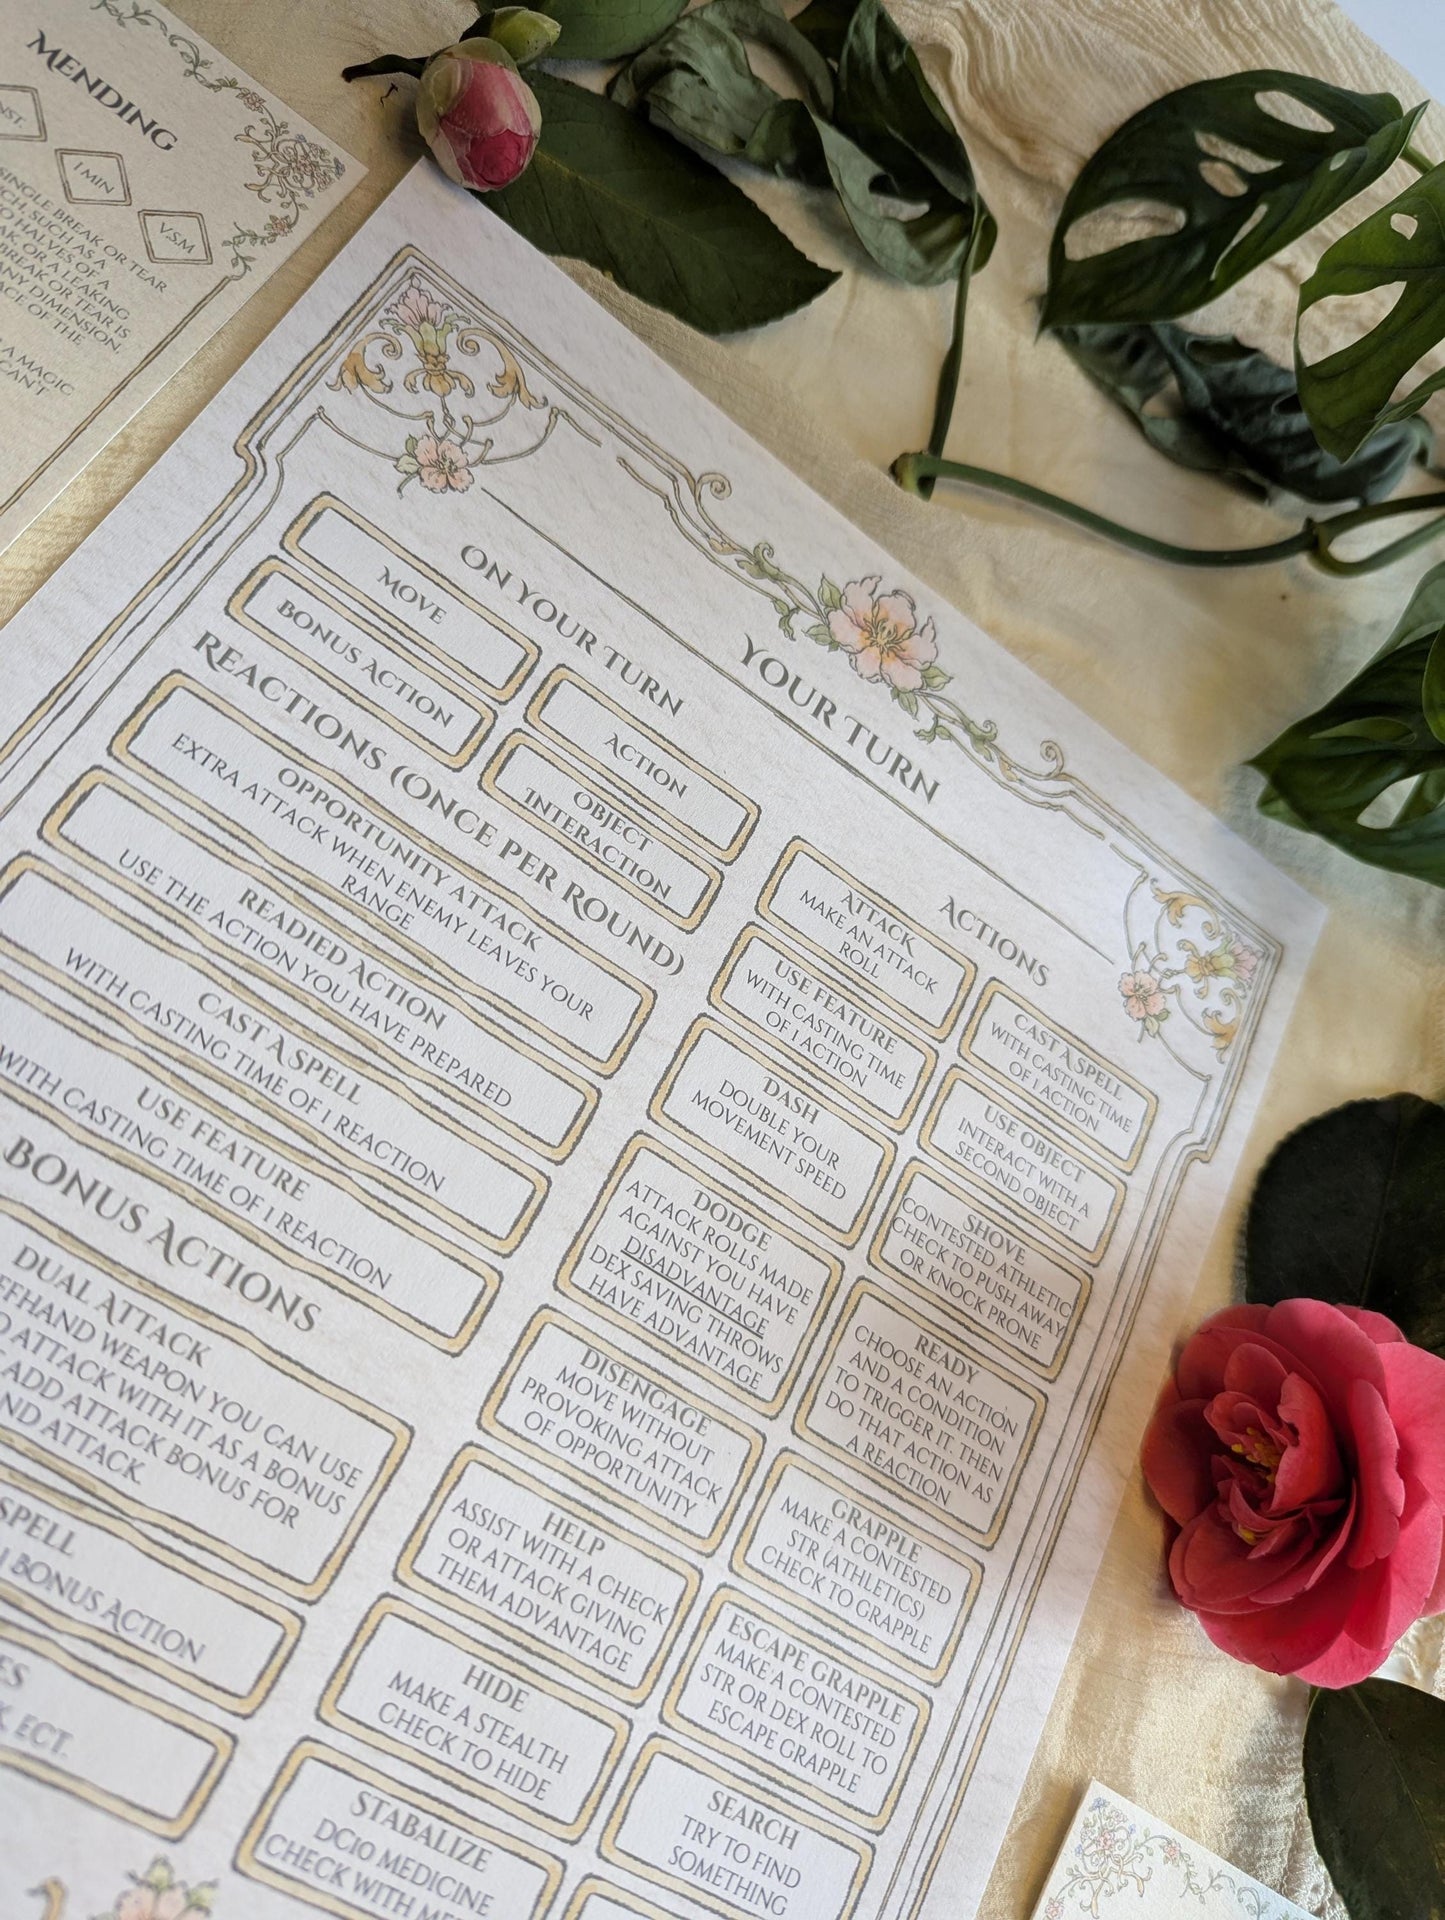 MENDING
INST.
1 MIN
V.S.M
SINGLE BREAK OR TEAR
SUCH AS A
HALVES OF
OR A LEAKING
BREAK OR TEAR IS
ANY DIMENSION,
OF THE
A MAGIC
CAN'T
YOUR TURN
ON YOUR TURN
MOVE
ACTION
BONUS ACTION
OBJECT
INTERACTION
REACTIONS (ONCE PER ROUND)
OPPORTUNITY ATTACK
EXTRA ATTACK WHEN ENEMY LEAVES YOUR
RANGE
READIED ACTION
USE THE ACTION YOU HAVE PREPARED
CAST A SPELL
WITH CASTING TIME OF 1 REACTION
USE FEATURE
WITH CASTING TIME OF 1 REACTION
BONUS ACTIONS
DUAL ATTACK
WEAPON YOU CAN USE
ATTACK WITH IT AS A BONUS
ADD ATTACK BONUS FOR
ATTACK.
SPELL
1 BONUS ACTION
ECT.
ACTIONS
ATTACK
MAKE AN ATTACK
ROLL
CAST A SPELL
WITH CASTING TIME
OF 1 ACTION
USE FEATURE
WITH CASTING TIME
OF 1 ACTION
USE OBJECT
INTERACT WITH A
SECOND OBJECT
DASH
DOUBLE YOUR
MOVEMENT SPEED
SHOVE
CONTESTED ATHLETIC
CHECK TO PUSH AWAY
OR KNOCK PRONE
DODGE
ATTACK ROLLS MADE
AGAINST YOU HAVE
DISADVANTAGE
DEX SAVING THROWS
HAVE ADVANTAGE
READY
CHOOSE AN ACTION
AND A CONDITION
TO TRIGGER IT. THEN
DO THAT ACTION AS
A REACTION
DISENGAGE
MOVE WITHOUT
PROVOKING ATTACK
OF OPPORTUNITY
GRAPPLE
MAKE A CONTESTED
STR (ATHLETICS)
CHECK TO GRAPPLE
HELP
ASSIST WITH A CHECK
OR ATTACK GIVING
THEM ADVANTAGE
ESCAPE GRAPPLE
MAKE A CONTESTED
STR OR DEX ROLL TO
ESCAPE GRAPPLE
HIDE
MAKE A STEALTH
CHECK TO HIDE
SEARCH
TRY TO FIND
SOMETHING
STABALIZE
DC10 MEDICINE
CHECK WITH